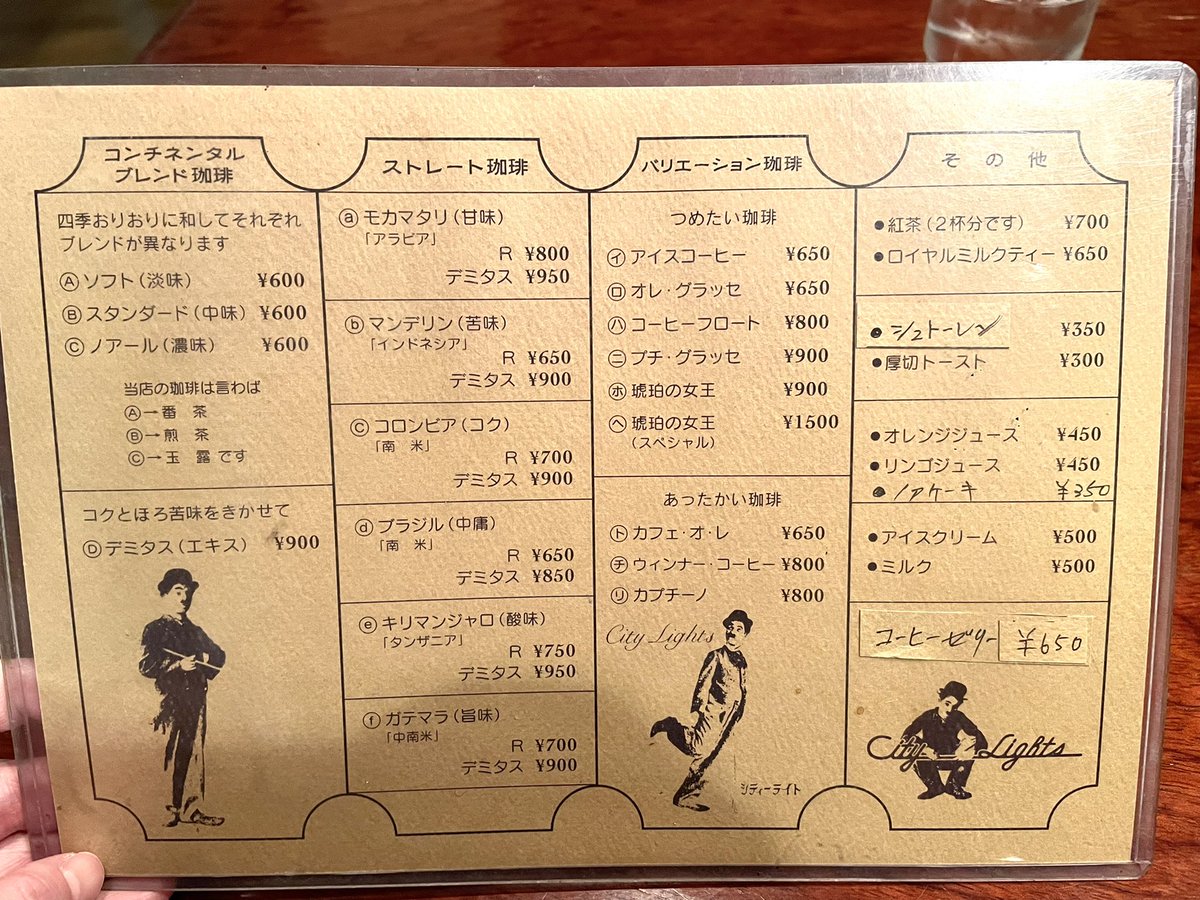 コンチネンタル
ブレンド珈琲
四季おりおりに和してそれぞれ
ブレンドが異なります
Ⓐソフト(淡味) ¥600
Ⓑスタンダード(中味) ¥600
Ⓒノアール(濃味) ¥600
当店の珈琲は言わば
Ⓐ→番 茶
Ⓑ→煎 茶
Ⓒ→玉 露です
コクとほろ苦味をきかせて
Ⓓデミタス(エキス) ¥900
ストレート珈琲
ⓐモカマタリ(甘味)
「アラビア」
R ¥800
デミタス ¥950
ⓑマンデリン(苦味)
「インドネシア」
R ¥650
デミタス ¥900
ⓒコロンビア(コク)
「南 米」
R ¥700
デミタス ¥900
ⓓブラジル(中庸)
「南 米」
R ¥650
デミタス ¥850
ⓔキリマンジャロ(酸味)
「タンザニア」
R ¥750
デミタス ¥950
ⓕガテマラ(旨味)
「中南米」
R ¥700
デミタス ¥900
バリエーション珈琲
つめたい珈琲
㋑アイスコーヒー ¥650
㋺オレ・グラッセ ¥650
㋩コーヒーフロート ¥800
㋥プチ・グラッセ ¥900
㋭琥珀の女王 ¥900
㋬琥珀の女王 ¥1500
(スペシャル)
あったかい珈琲
㋣カフェ・オ・レ ¥650
㋠ウィンナー・コーヒー ¥800
㋷カプチーノ ¥800
City Lights
シティーライト
その他
●紅茶(2杯分です) ¥700
●ロイヤルミルクティー ¥650
●シュトーレン ¥350
●厚切トースト ¥300
●オレンジジュース ¥450
●リンゴジュース ¥450
●ノアケーキ ¥350
●アイスクリーム ¥500
●ミルク ¥500
コーヒーゼリー ¥650
City Lights